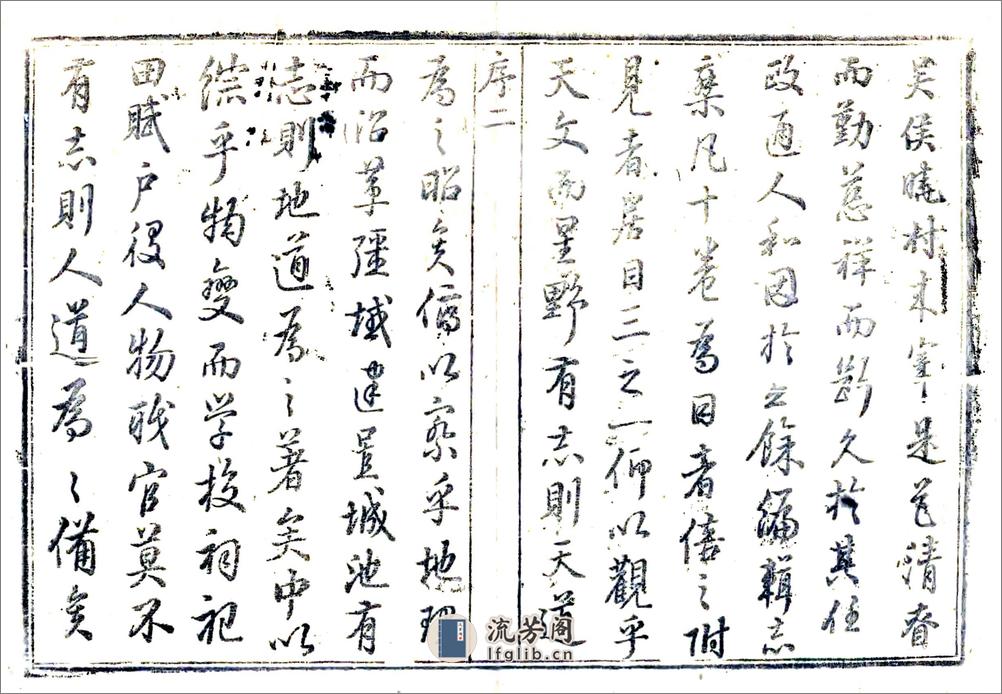 吴侯曉村來宰是邑清眘
而勤慈祥而斷久於其任
政通人和因於公餘編輯志
槀凡十卷為目者倍之附
見者居目三之一仰以觀乎
天文而星野有志則天道
序二
為之昭矣俯以察乎地理
而沿革疆域建置城池有
志則地道為之著矣中以
綜乎物變而学校祠祀
田賦户役人物職官莫不
有志則人道為之備矣
流芳阁
lfglib.cn